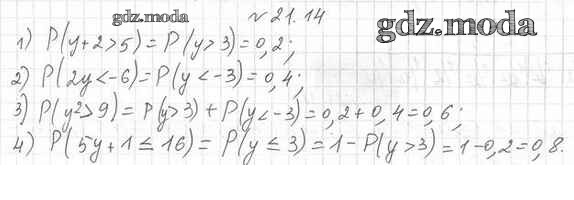 gdz.moda №21.14 gdz.moda
1) P(y+2>5)=P(y>3)=0,2;
2) P(2y<-6)=P(y<-3)=0,4;
3) P(y²>9)=P(y>3)+P(y<-3)=0,2+0,4=0,6;
4) P(5y+1≤16)=P(y≤3)=1-P(y>3)=1-0,2=0,8.